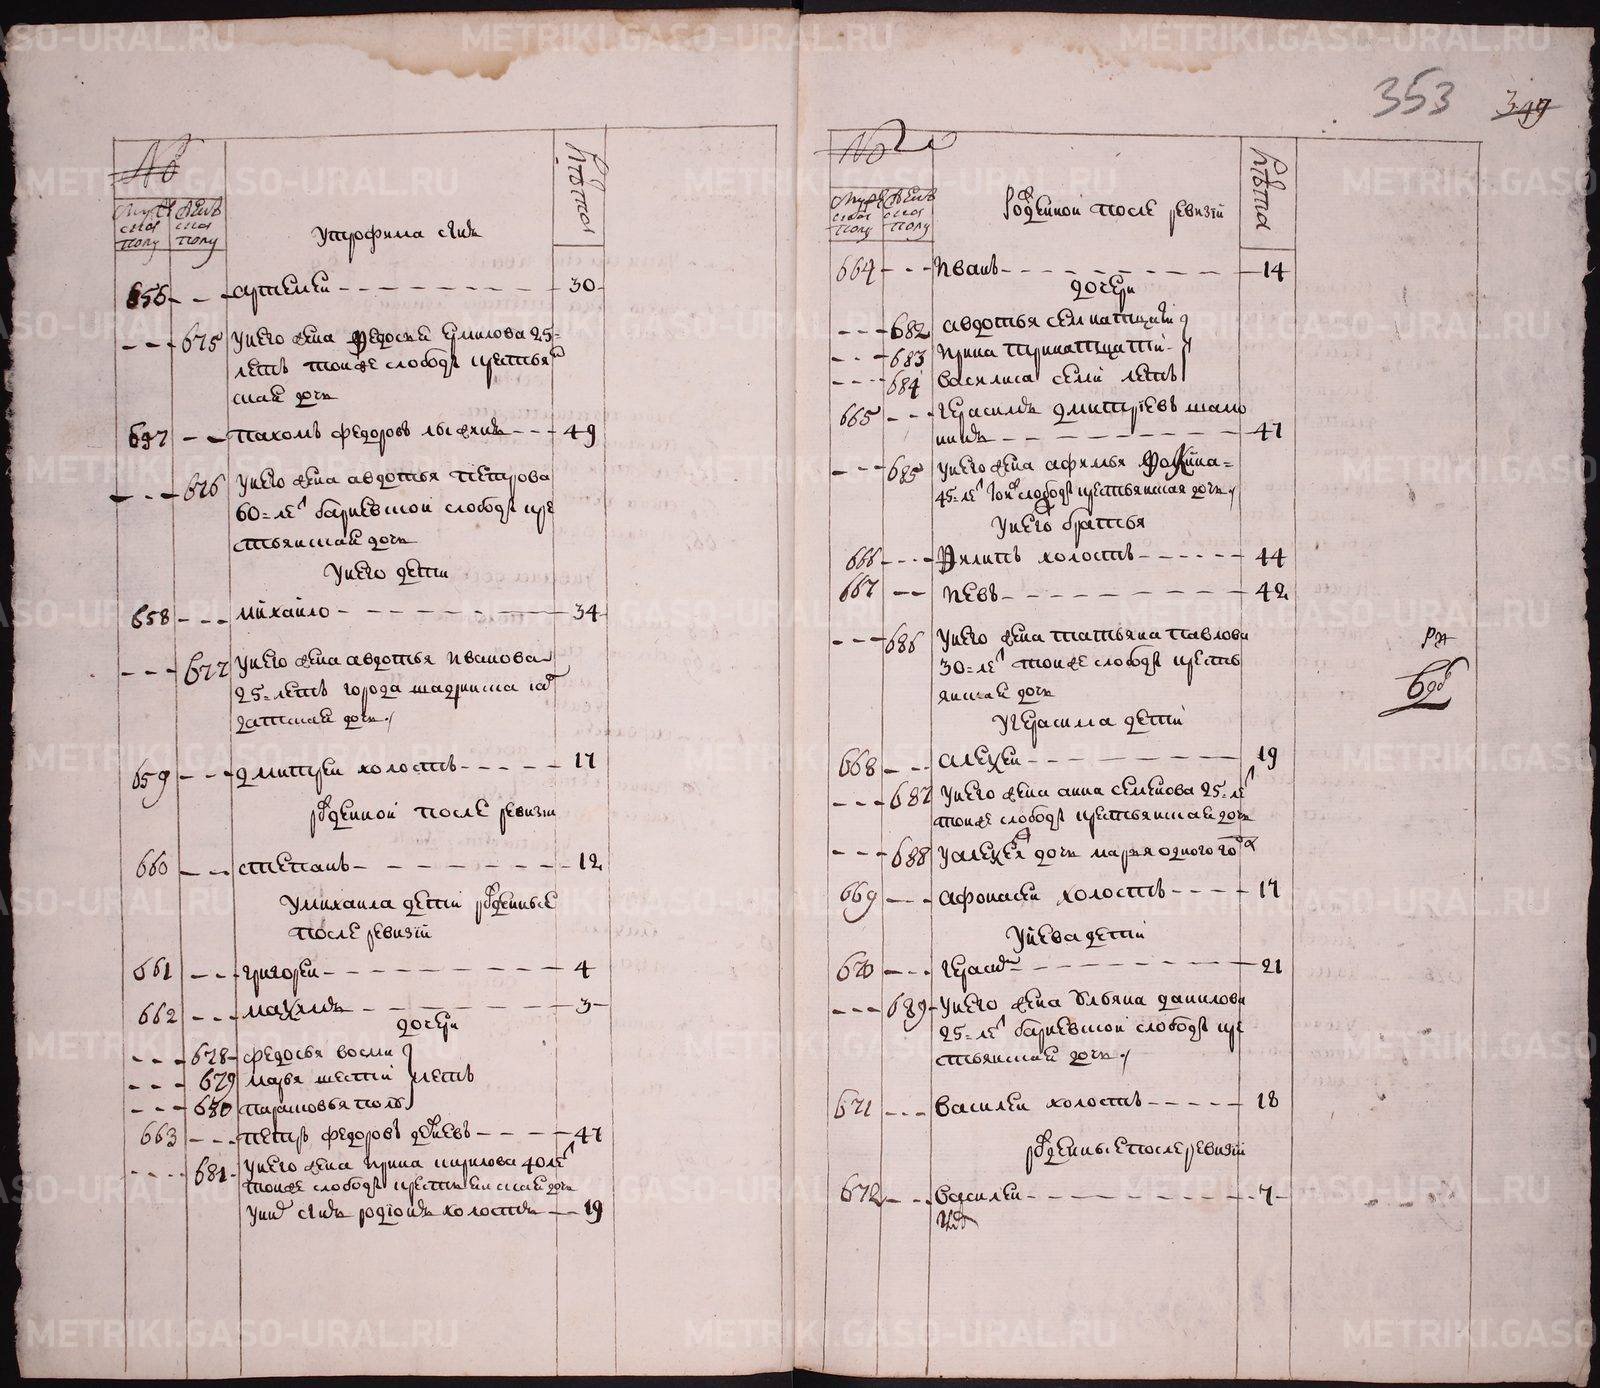 353 349
№
Мужеска полу
Женска полу
Лѣта
У трофима сынъ
656 артемеи 30
675 у него жена федосья ермилова 25=
летъ тоиже слободы крестья
ская дочь
657 пахомъ федоровъ лыжинъ 49
676 у него жена авдотья петрова
60=ле барневской слободы кре
стьянская дочь
у него дети
658 михаило 34
677 у него жена авдотья иванова
25=летъ города шадринска
дочь
659 дмитреи холостъ 17
рожденной после ревизии
660 степанъ 12
у михаила дети рожденные
после ревизiи
661 григореи 4
662 3
дочери
678 федосья восми
679 марья шести летъ
680 парасковья полу
663 петръ федоровъ 47
681 у него жена ирина кирилова 40 ле
тоиже слободы крестьянская дочь
у них сынъ родiонъ холостъ 19
№
Мужеска полу
Женска полу
Лѣта
рожденной после ревизiи
664 иванъ 14
дочери
682 авдотья семнатцати
683 ирина тринатцати
684 василиса семи летъ
665 герасимъ дмитрiевъ шамо
нинъ 47
685 у него жена афимья фокина=
45=ле тоиж слободы крестьянская дочь
у него братья
666 филипъ холостъ 44
667 иевъ 42
686 у него жена татьяна павлова
30=ле тоиже слободы кресть
янская дочь
у герасима дети
668 алексеи 19
687 у него жена анна семенова 25=ле
тоиже слободы крестьянская дочь
688 у алексея дочь марья одного году
669 афонасеи холостъ 17
у иева дети
670 герасимъ 21
689 у него жена ульяна данилова
25=ле барневской слободы кре
стьянская дочь
671 василеи холостъ 18
рожденные после ревизiи
672 василеи 7